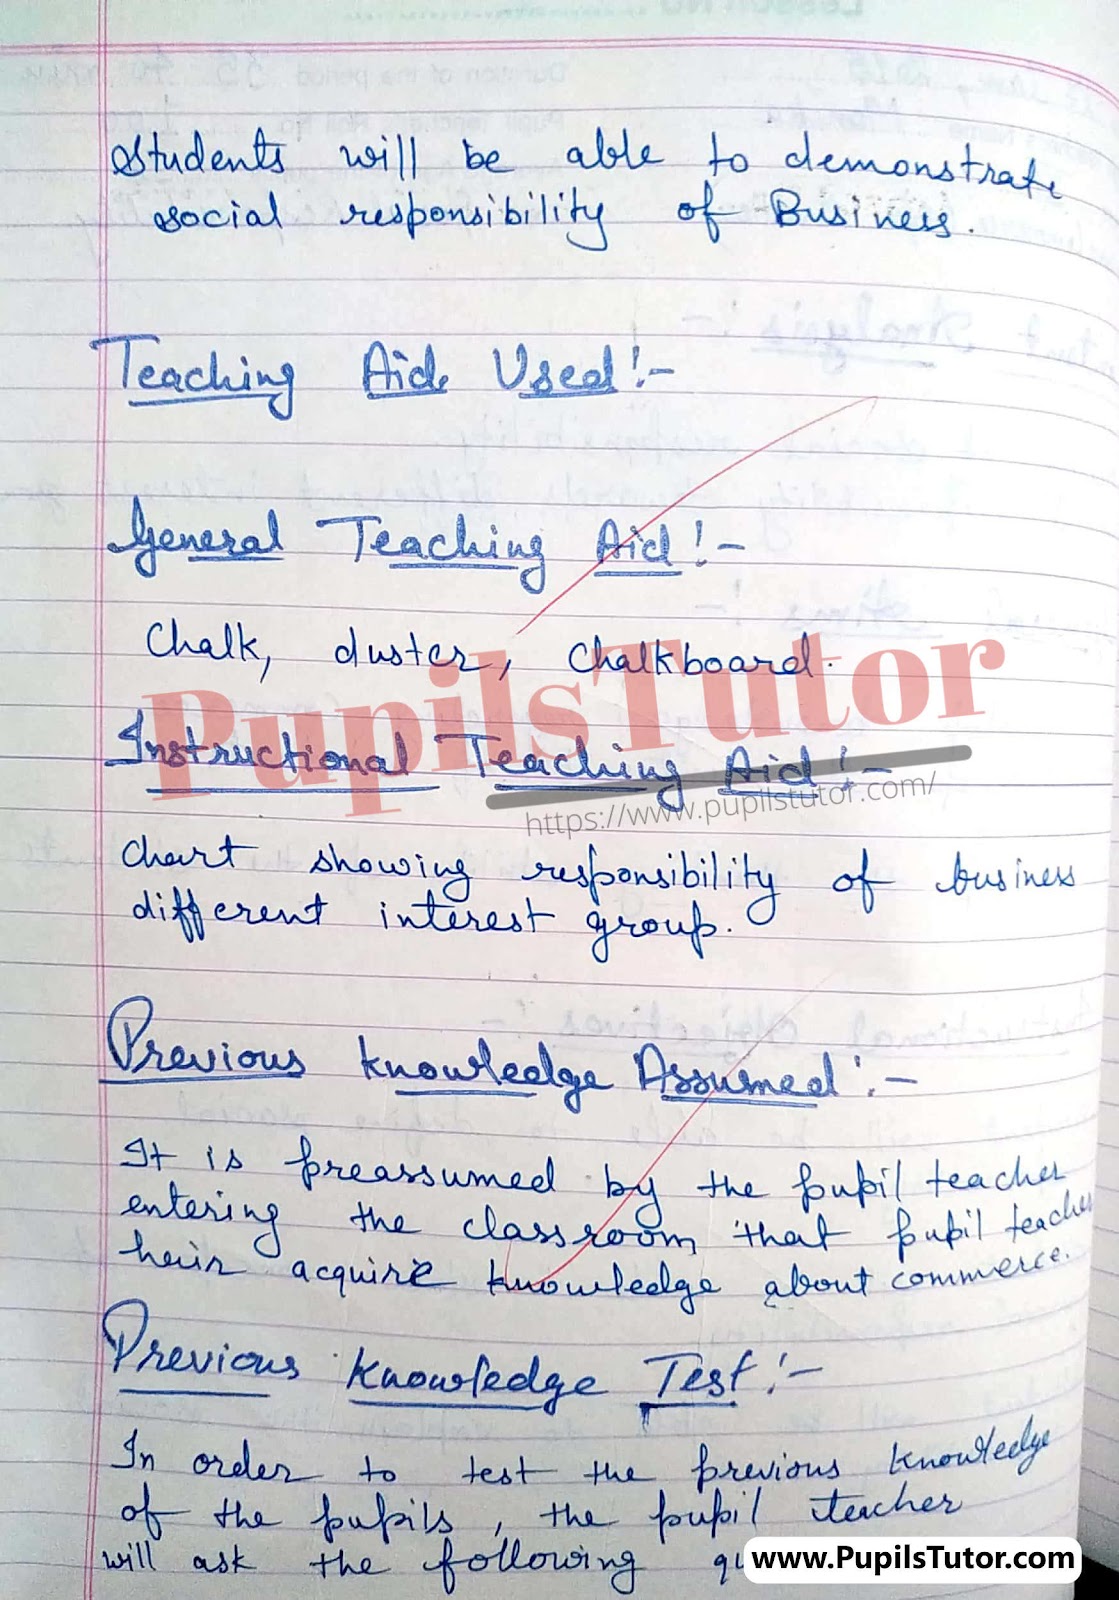 Students will be able to demonstrate
social responsibility of Business.
Teaching Aids Used :-
General Teaching Aid :-
Chalk, duster, chalkboard.
PupilsTutor
Instructional Teaching Aid :-
https://www.pupilstutor.com/
Chart showing responsibility of business
different interest group.
Previous knowledge Assumed :-
It is preassumed by the pupil teacher
entering the classroom that pupil teacher
heir acquire knowledge about commerce.
Previous knowledge Test :-
In order to test the previous knowledge
of the pupils, the pupil teacher
will ask the following
www.PupilsTutor.com